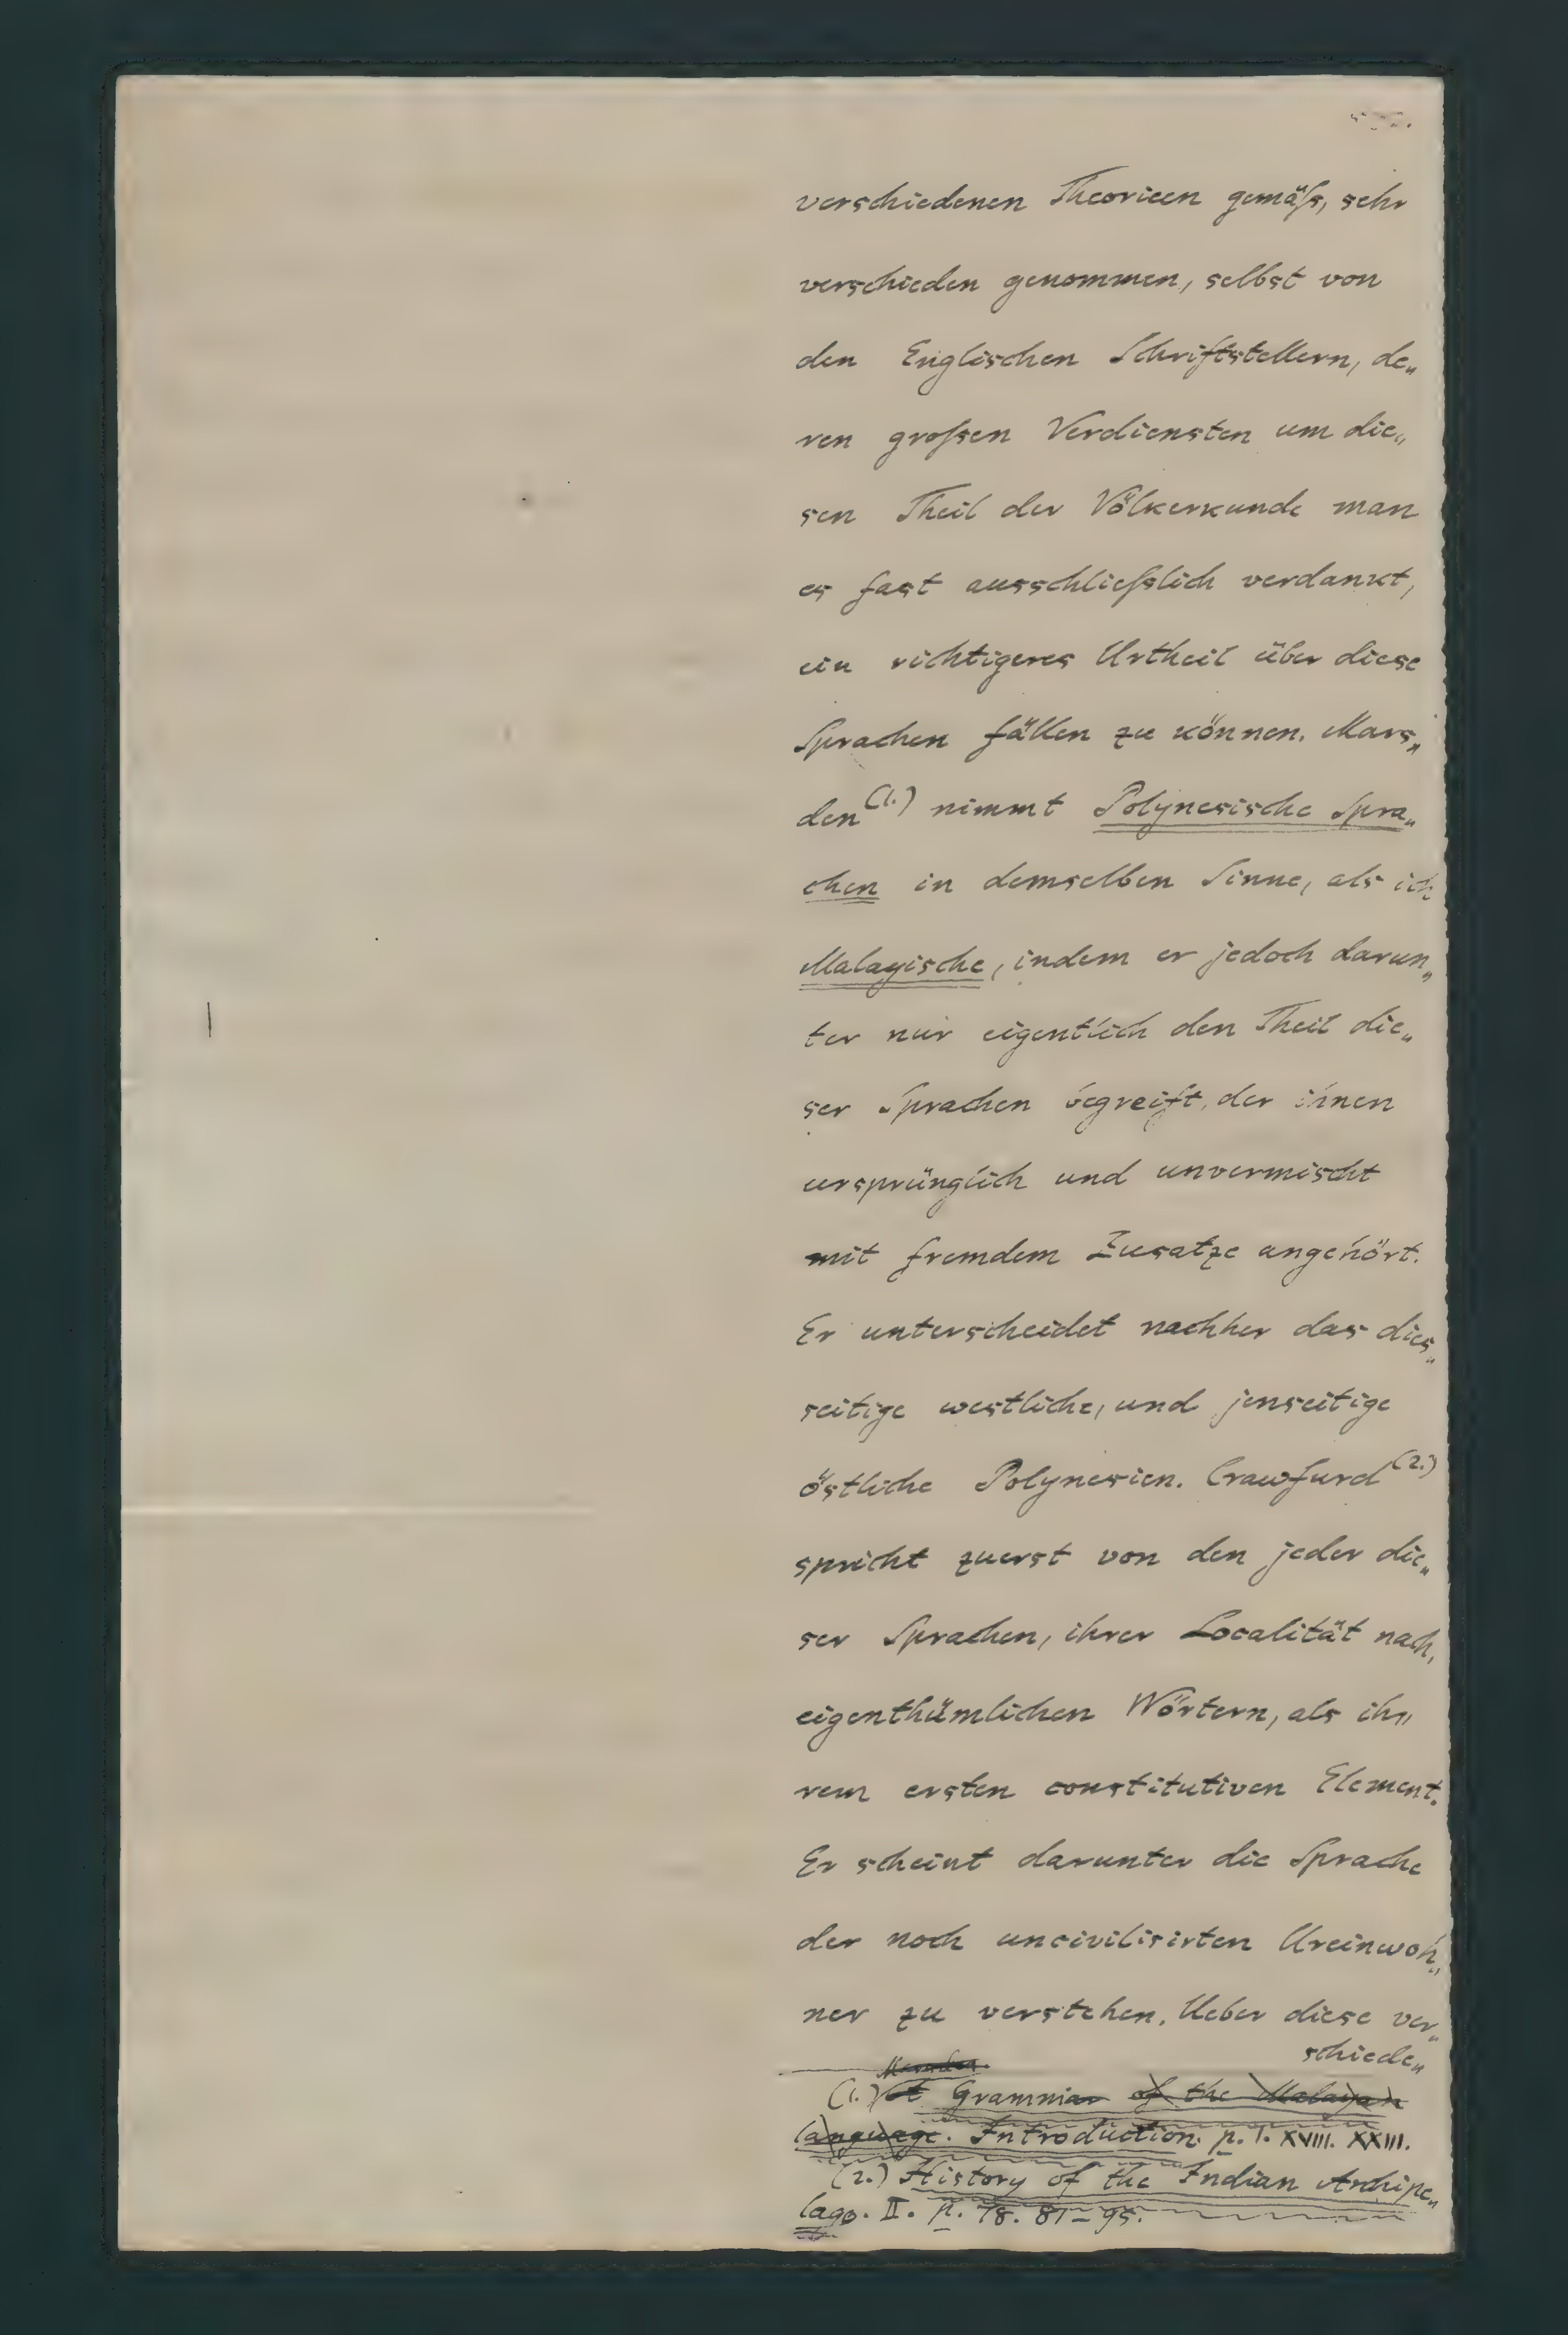 verschiedenen Theorieen gemäſs, sehr
verschieden genommen, selbst von
den Englischen Schriftstellern, de„
ren groſsen Verdiensten um die„
sen Theil der Völkerkunde man
es fast ausschlieſslich verdankt,
ein richtigeres Urtheil über diese
Sprachen fällen zu können. Mars„
den(1.) nimmt Polynesische Spra„
chen in demselben Sinne, als ich
Malayische, indem er jedoch darun„
ter nur eigentlich den Theil die„
ser Sprachen begreift, der ihnen
ursprünglich und unvermischt
mit fremdem Zusatze angehört.
Er unterscheidet nachher das dies„
seitige westliche, und jenseitige
östliche Polynesien. Crawfurd(2.)
spricht zuerst von den jeder die„
ser Sprachen, ihrer Localität nach,
eigenthümlichen Wörtern, als ih„
rem ersten constitutiven Element.
Er scheint darunter die Sprache
der noch uncivilisirten Ureinwoh„
ner zu verstehen. Ueber diese ver„
schiede„
Marsden
(1.) A Grammar of the Malayan
language. Introduction. p. I. XVIII. XXIII.
(2.) History of the Indian Archipe„
lago. II. p. 78. 81-95.